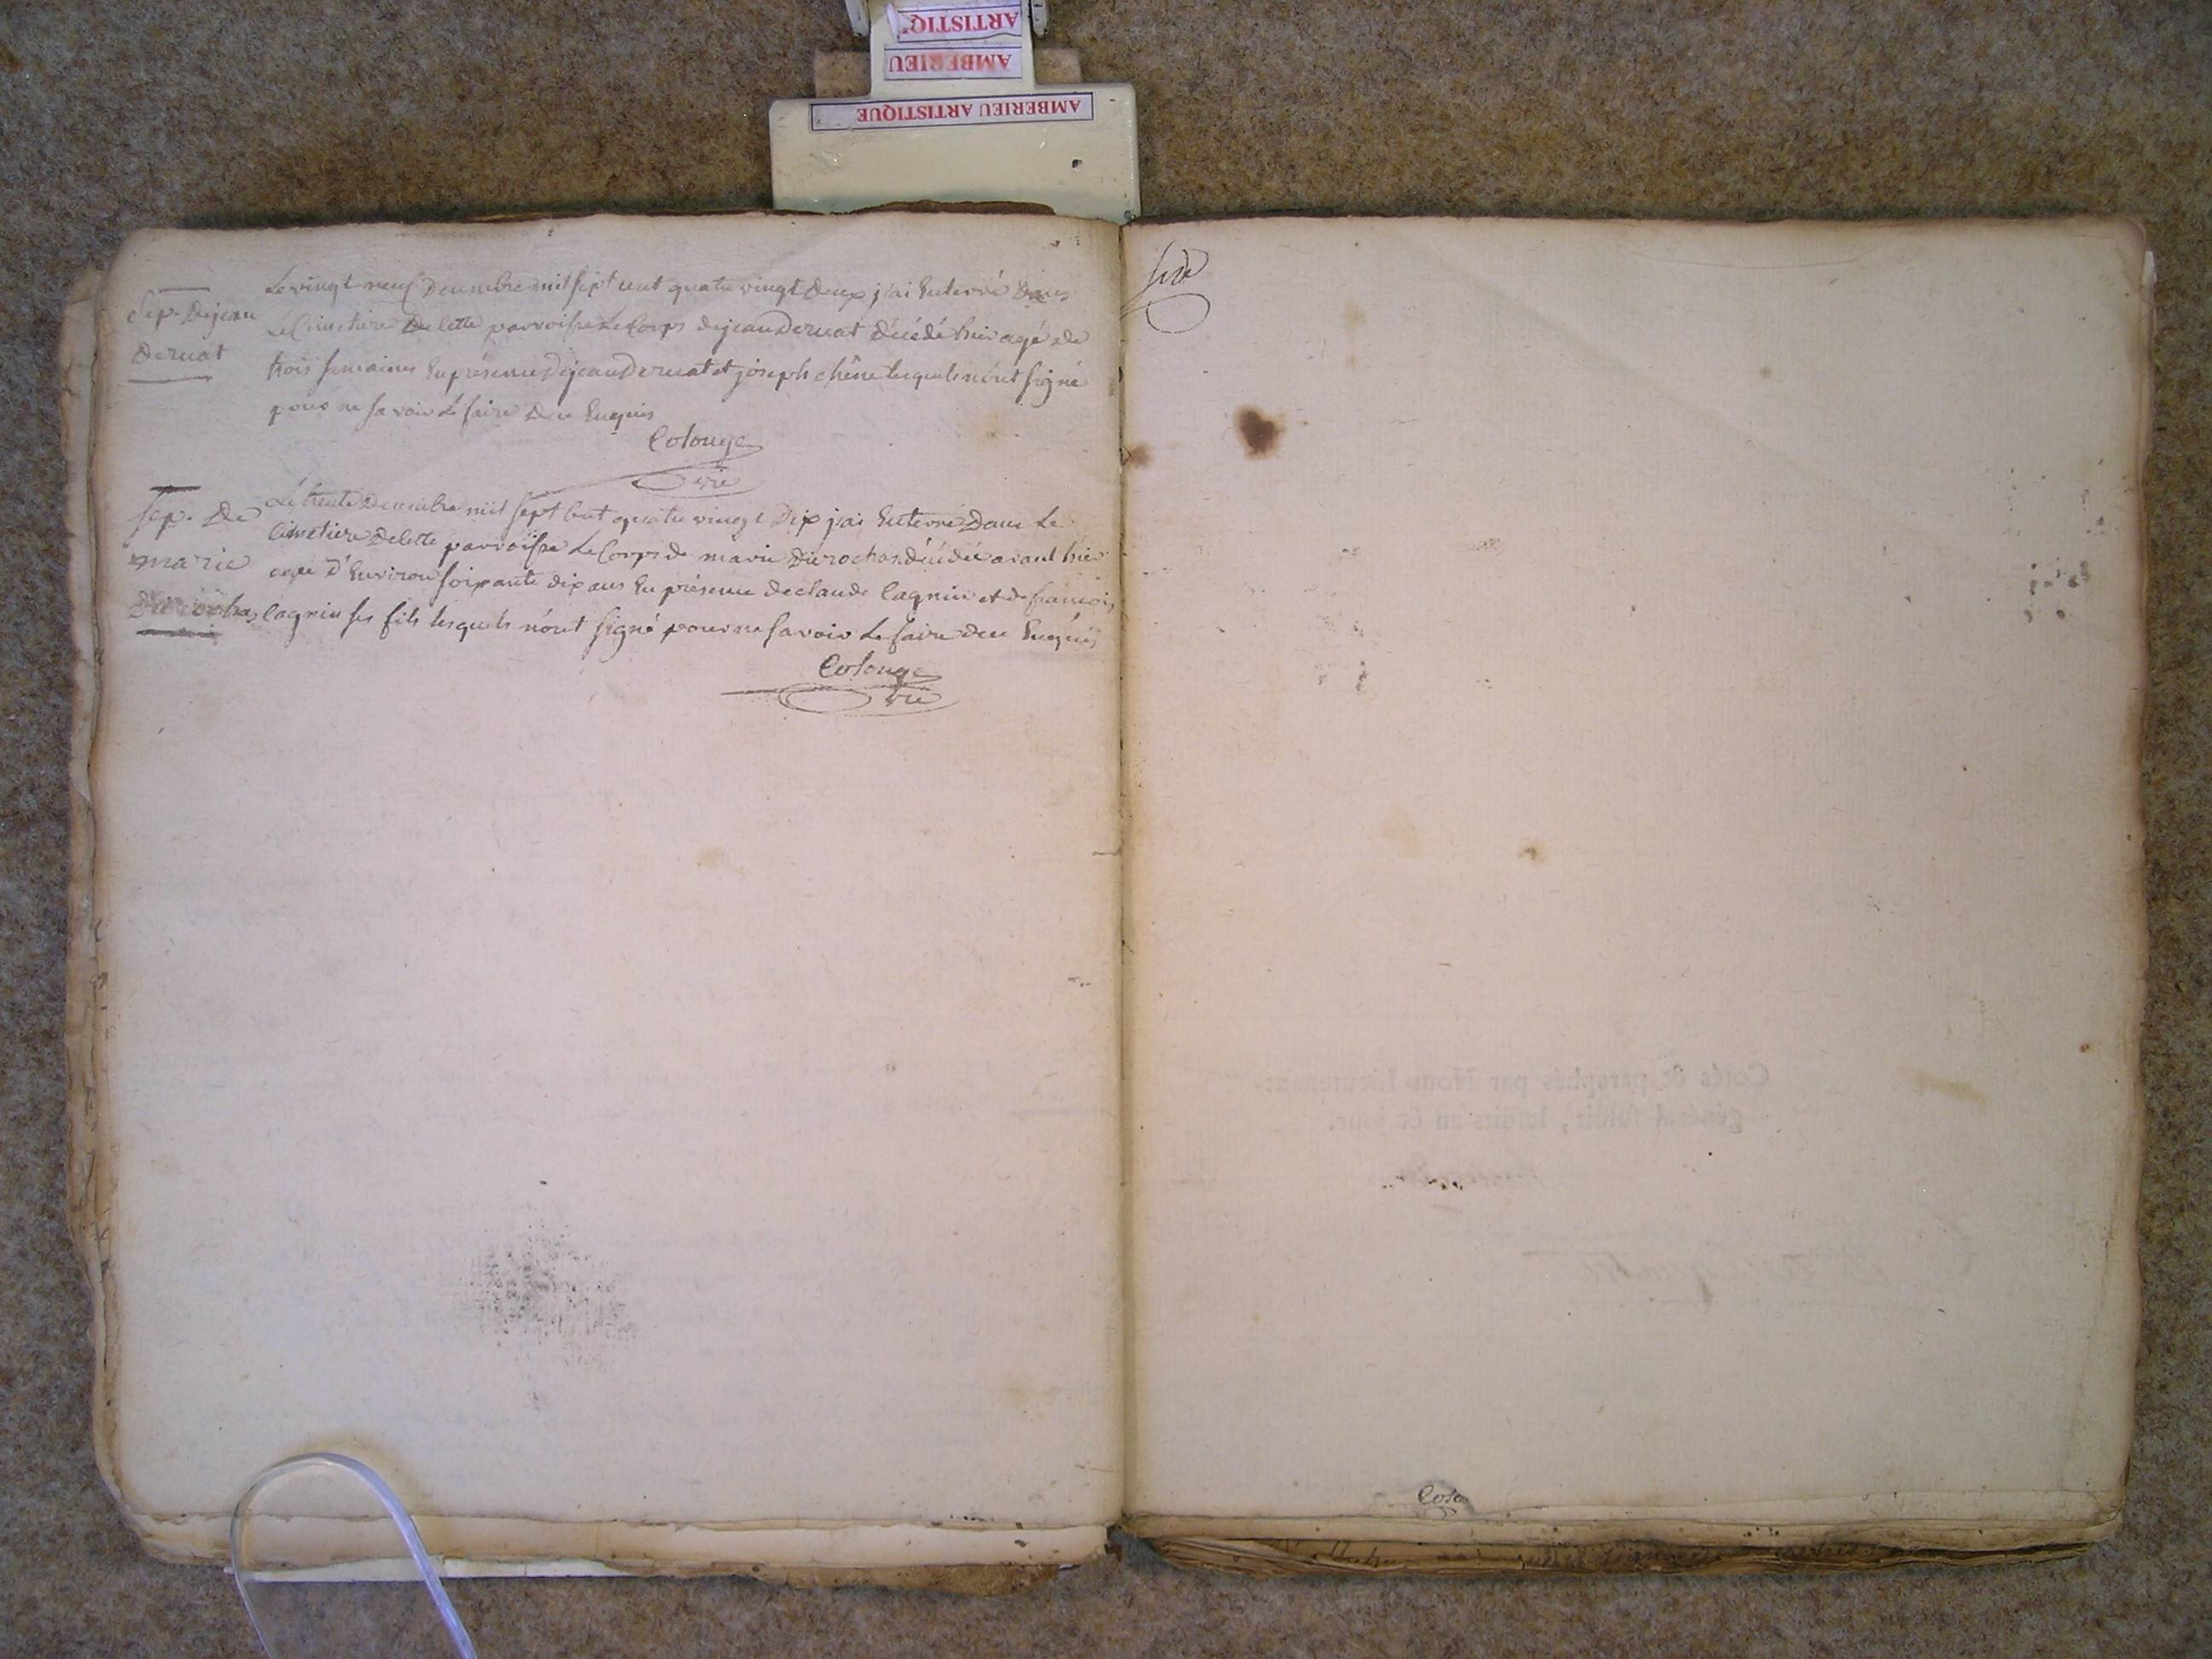 ARTISTIQ
AMBERIEU
AMBERIEU ARTISTIQUE
Sep. Dejean
Deruat
Le vingt neuf Decembre mil sept cent quatre vingt Deux j'ai Enterré Dans
Le Cimetiere De cette parroisse Le Corps dejean Deruat décédé hier agé de
trois semaines En présence Dejean Deruat et joseph chêne lesquels n'ont signé
pour ne savoir Le faire De ce Enquis
Colouge
vic
Sep. De
marie
Durochas
Le trente Decembre mil sept cent quatre vingt Dix j'ai Enterré Dans Le
cimetiere De cette parroisse Le Corps de marie Durochas décédée avant hier
agée D'Environ soixante dix ans En présence de claude Cagnin et de francois
Cagnin ses fils lesquels n'ont signé pour ne savoir Le faire de ce Enquis
Colouge
vic
Cotés & paraphés par Nous Lieutenant-
général susdit, lesdits an & jour.